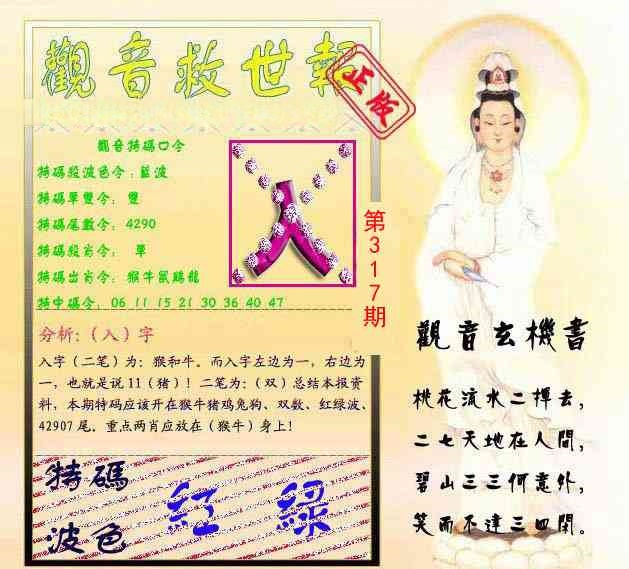 觀音救世報
正版
觀音特碼口令
特碼殺波色令：藍波
特碼單雙令： 雙
特碼尾數令：4290
特碼殺肖令： 單
特碼出肖令：猴牛鼠鷄龍
特中碼令：06 11 15 21 30 36 40 47
入
第317期
分析：（入）字
入字（二笔）为：猴和牛。而入字左边为一，右边为
一，也就是说11（猪）！二笔为：（双）总结本报资
料，本期特码应该开在猴牛猪鸡兔狗、双数、红绿波、
42907尾。重点两肖应放在（猴牛）身上！
特碼
波色
紅 綠
觀音玄機書
桃花流水二揮去，
二七天地在人間，
碧山三三何意外，
笑而不達三四閑。